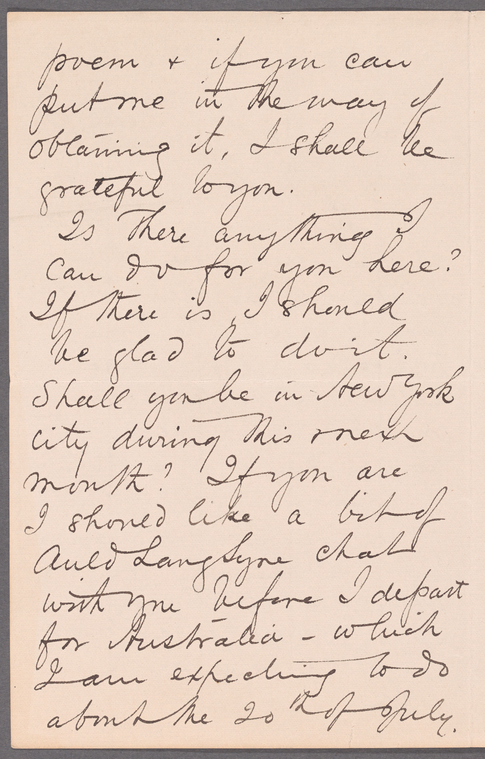 poem & if you can
put me in the way of
obtaining it, I shall be
grateful to you.
Is there anything I
can do for you here?
If there is, I should
be glad to do it.
Shall you be in New York
city during this next
month? If you are
I should like a bit of
Auld Lang Syne chat
with you before I depart
for Australia - which
I am expecting to do
about the 20th of July.